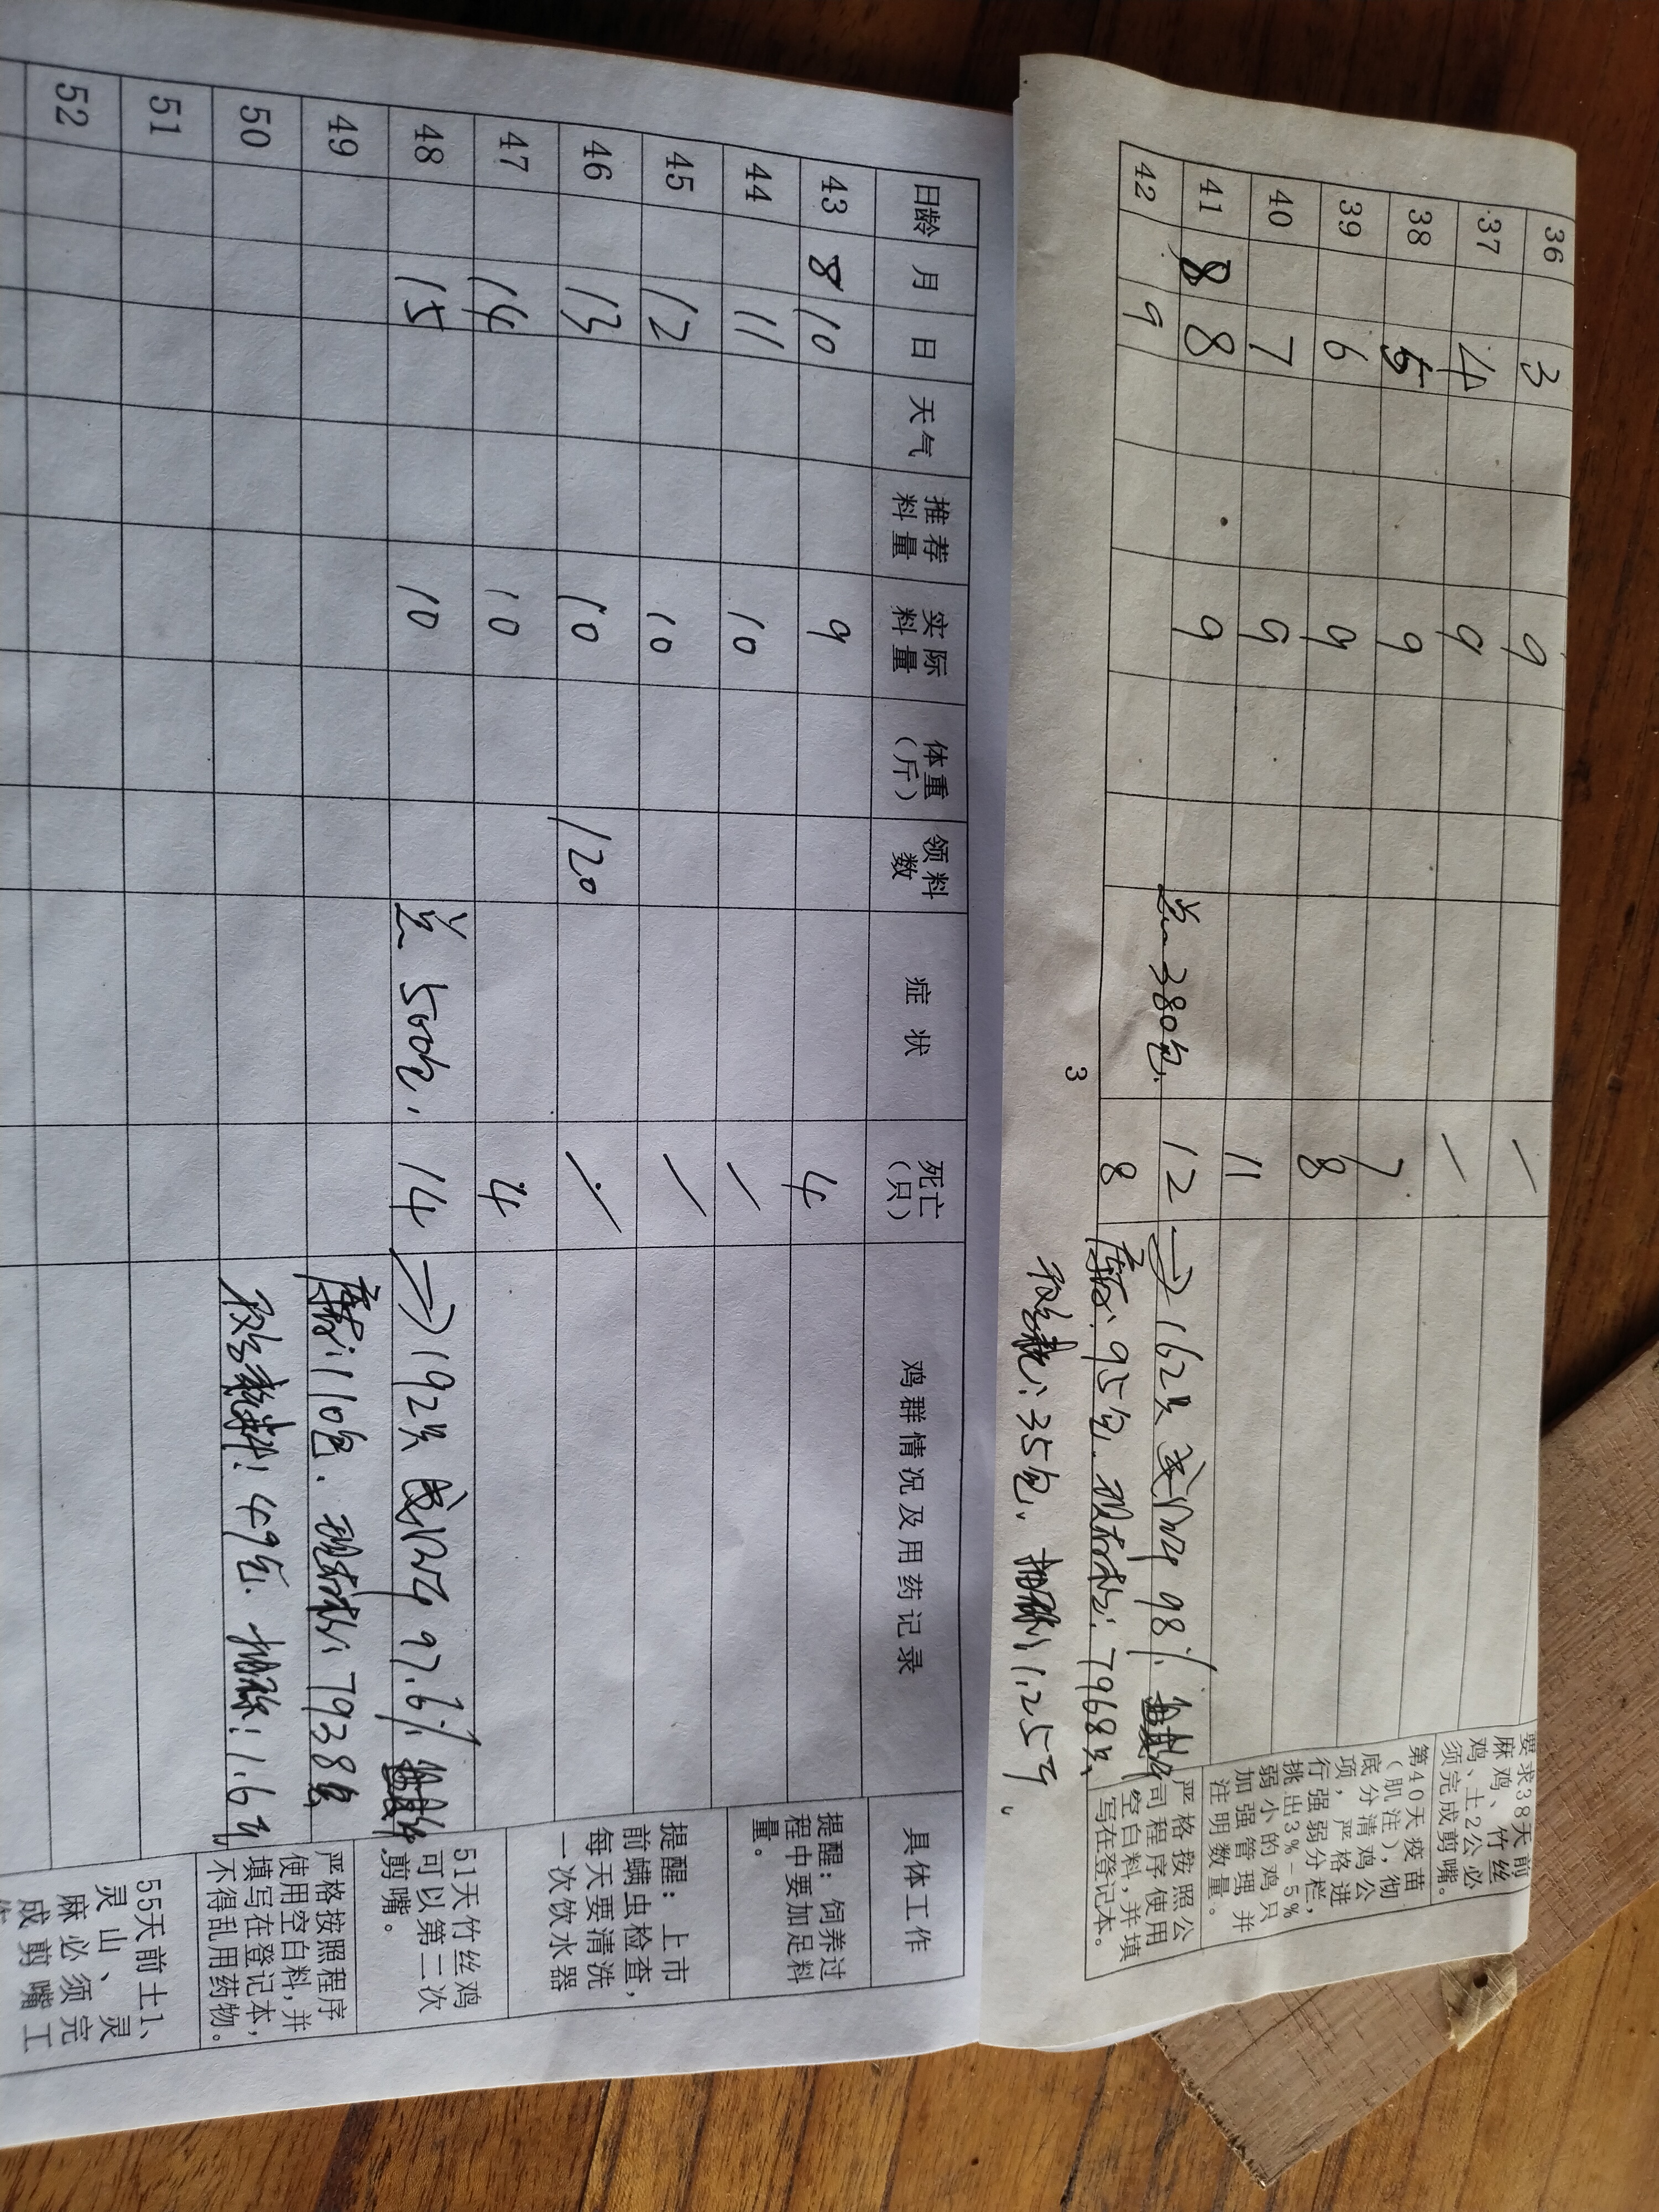 36 3 9 一
37 4 9 一
38 5 9 7
39 6 9 8
40 7 9 11
41 8 8 9 总380包. 12 → 162只 成活率98%.
42 9 8 库存: 95包. 现存栏: 7968只.
耗: 35包. 抽称: 1.25斤.
要求38天前
麻鸡、竹丝
鸡、土2公必
须完成剪嘴。
第40天疫苗
(肌注),彻
底分清鸡公
项,严格进
行强弱分栏,
挑出3%-5%
弱小的鸡只
加强管理,并
注明数量。
严格按照公
司程序使用
空白料,并填
写在登记本。
3
日龄 月 日 天气 推荐料量 实际料量 体重(斤) 领料数 症状 死亡(只) 鸡群情况及用药记录 具体工作
43 8 10 9 4
44 11 10 一
45 12 10 一
46 13 10 120 一
47 14 10 4
48 15 10 总500包. 14 → 192只 成活率97.6%
49 库存: 110包. 现存栏: 7938只
50 料: 49包. 抽称: 1.6斤
51
52
提醒:饲养过
程中要加足料
量。
提醒:上市
前螨虫检查,
每天要清洗
一次饮水器
51天竹丝鸡
可以第二次
剪嘴。
严格按照程序
使用空白料,并
填写在登记本,
不得乱用药物。
55天前土1、
灵山、灵
麻必须完
成剪嘴工